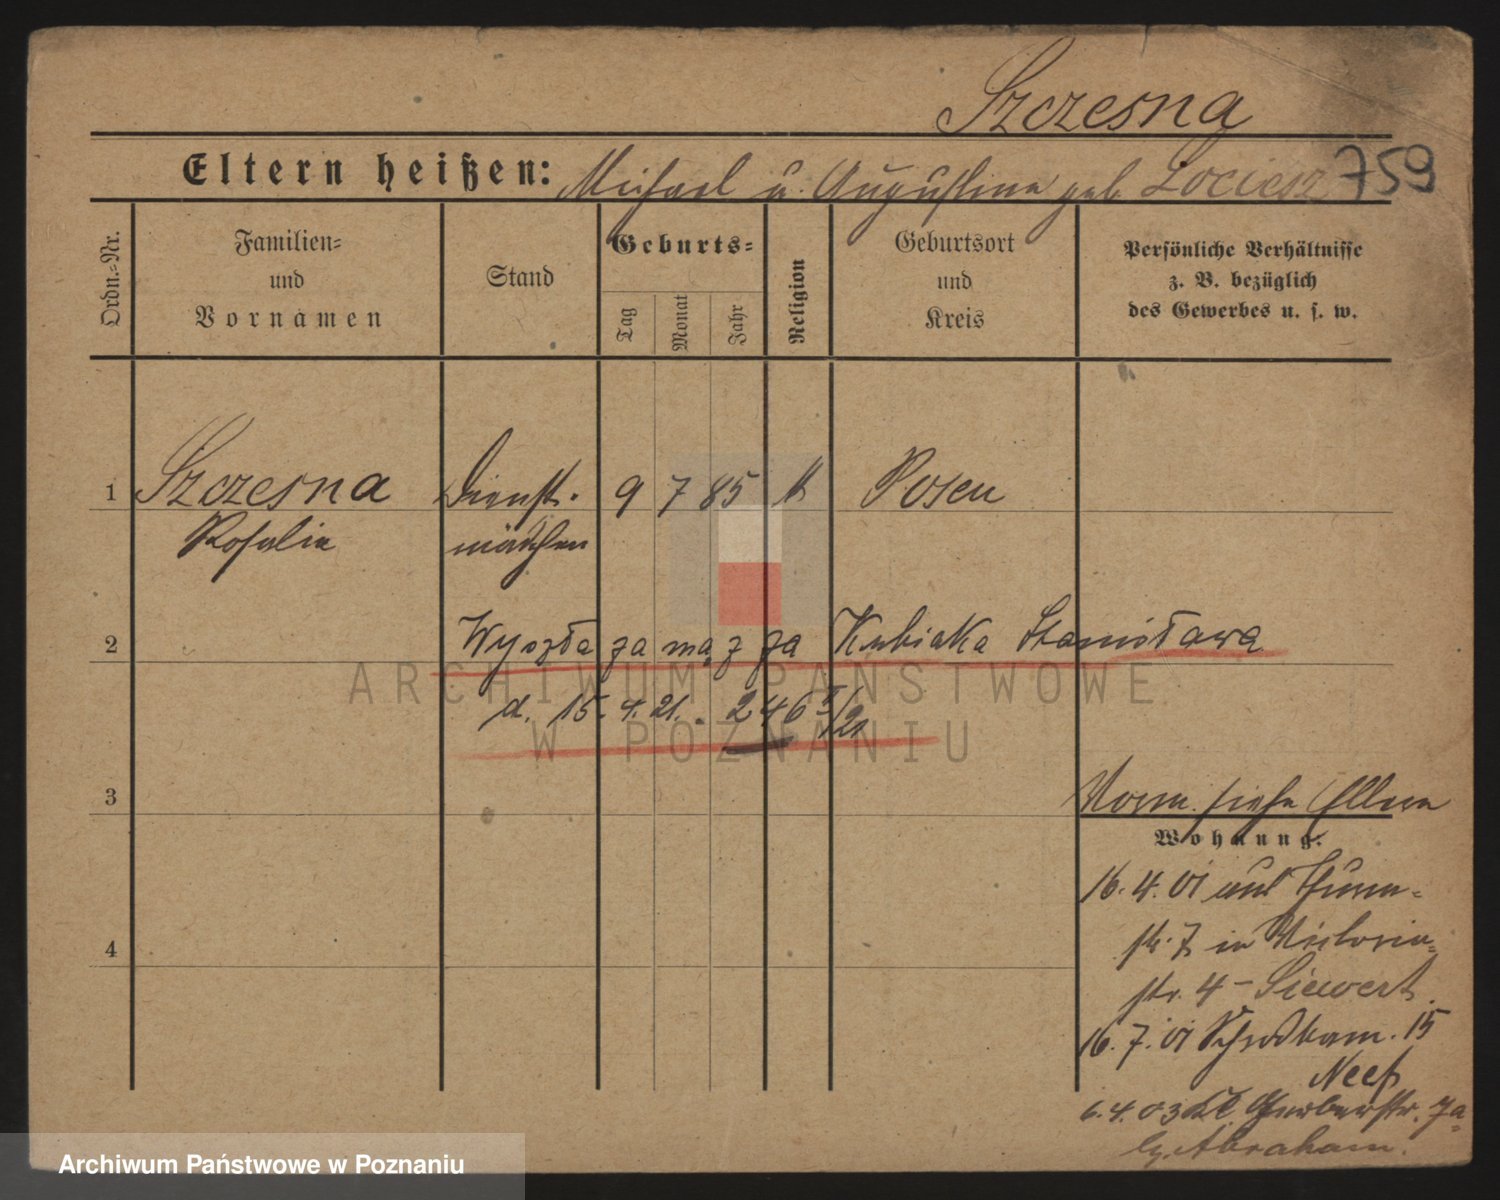 Szczesna
Eltern heißen: Michael u. Augustine geb. Lociesz 759
Ordn.-Nr.
Familien-
und
Vornamen
Stand
Geburts-
Tag
Monat
Jahr
Religion
Geburtsort
und
Kreis
Persönliche Verhältnisse
z. B. bezüglich
des Gewerbes u. s. w.
1 Szczesna Dienst- 9 7 85 k Posen
Rosalie mädchen
2 Wyszła za mąż za Kubiaka Stanisława
d. 15. 4. 21. 246 /21
ARCHIWUM PAŃSTWOWE
W POZNANIU
3
Vorm. siehe Eltern
Wohnung:
16. 4. 01 aus Thurm-
str. 7 in Victoria-
str. 4 - Siewert.
4
16. 7. 01 15
Neef
6. 4. 03 Kl. Gerberstr. 7a
b/ Abraham.
Archiwum Państwowe w Poznaniu